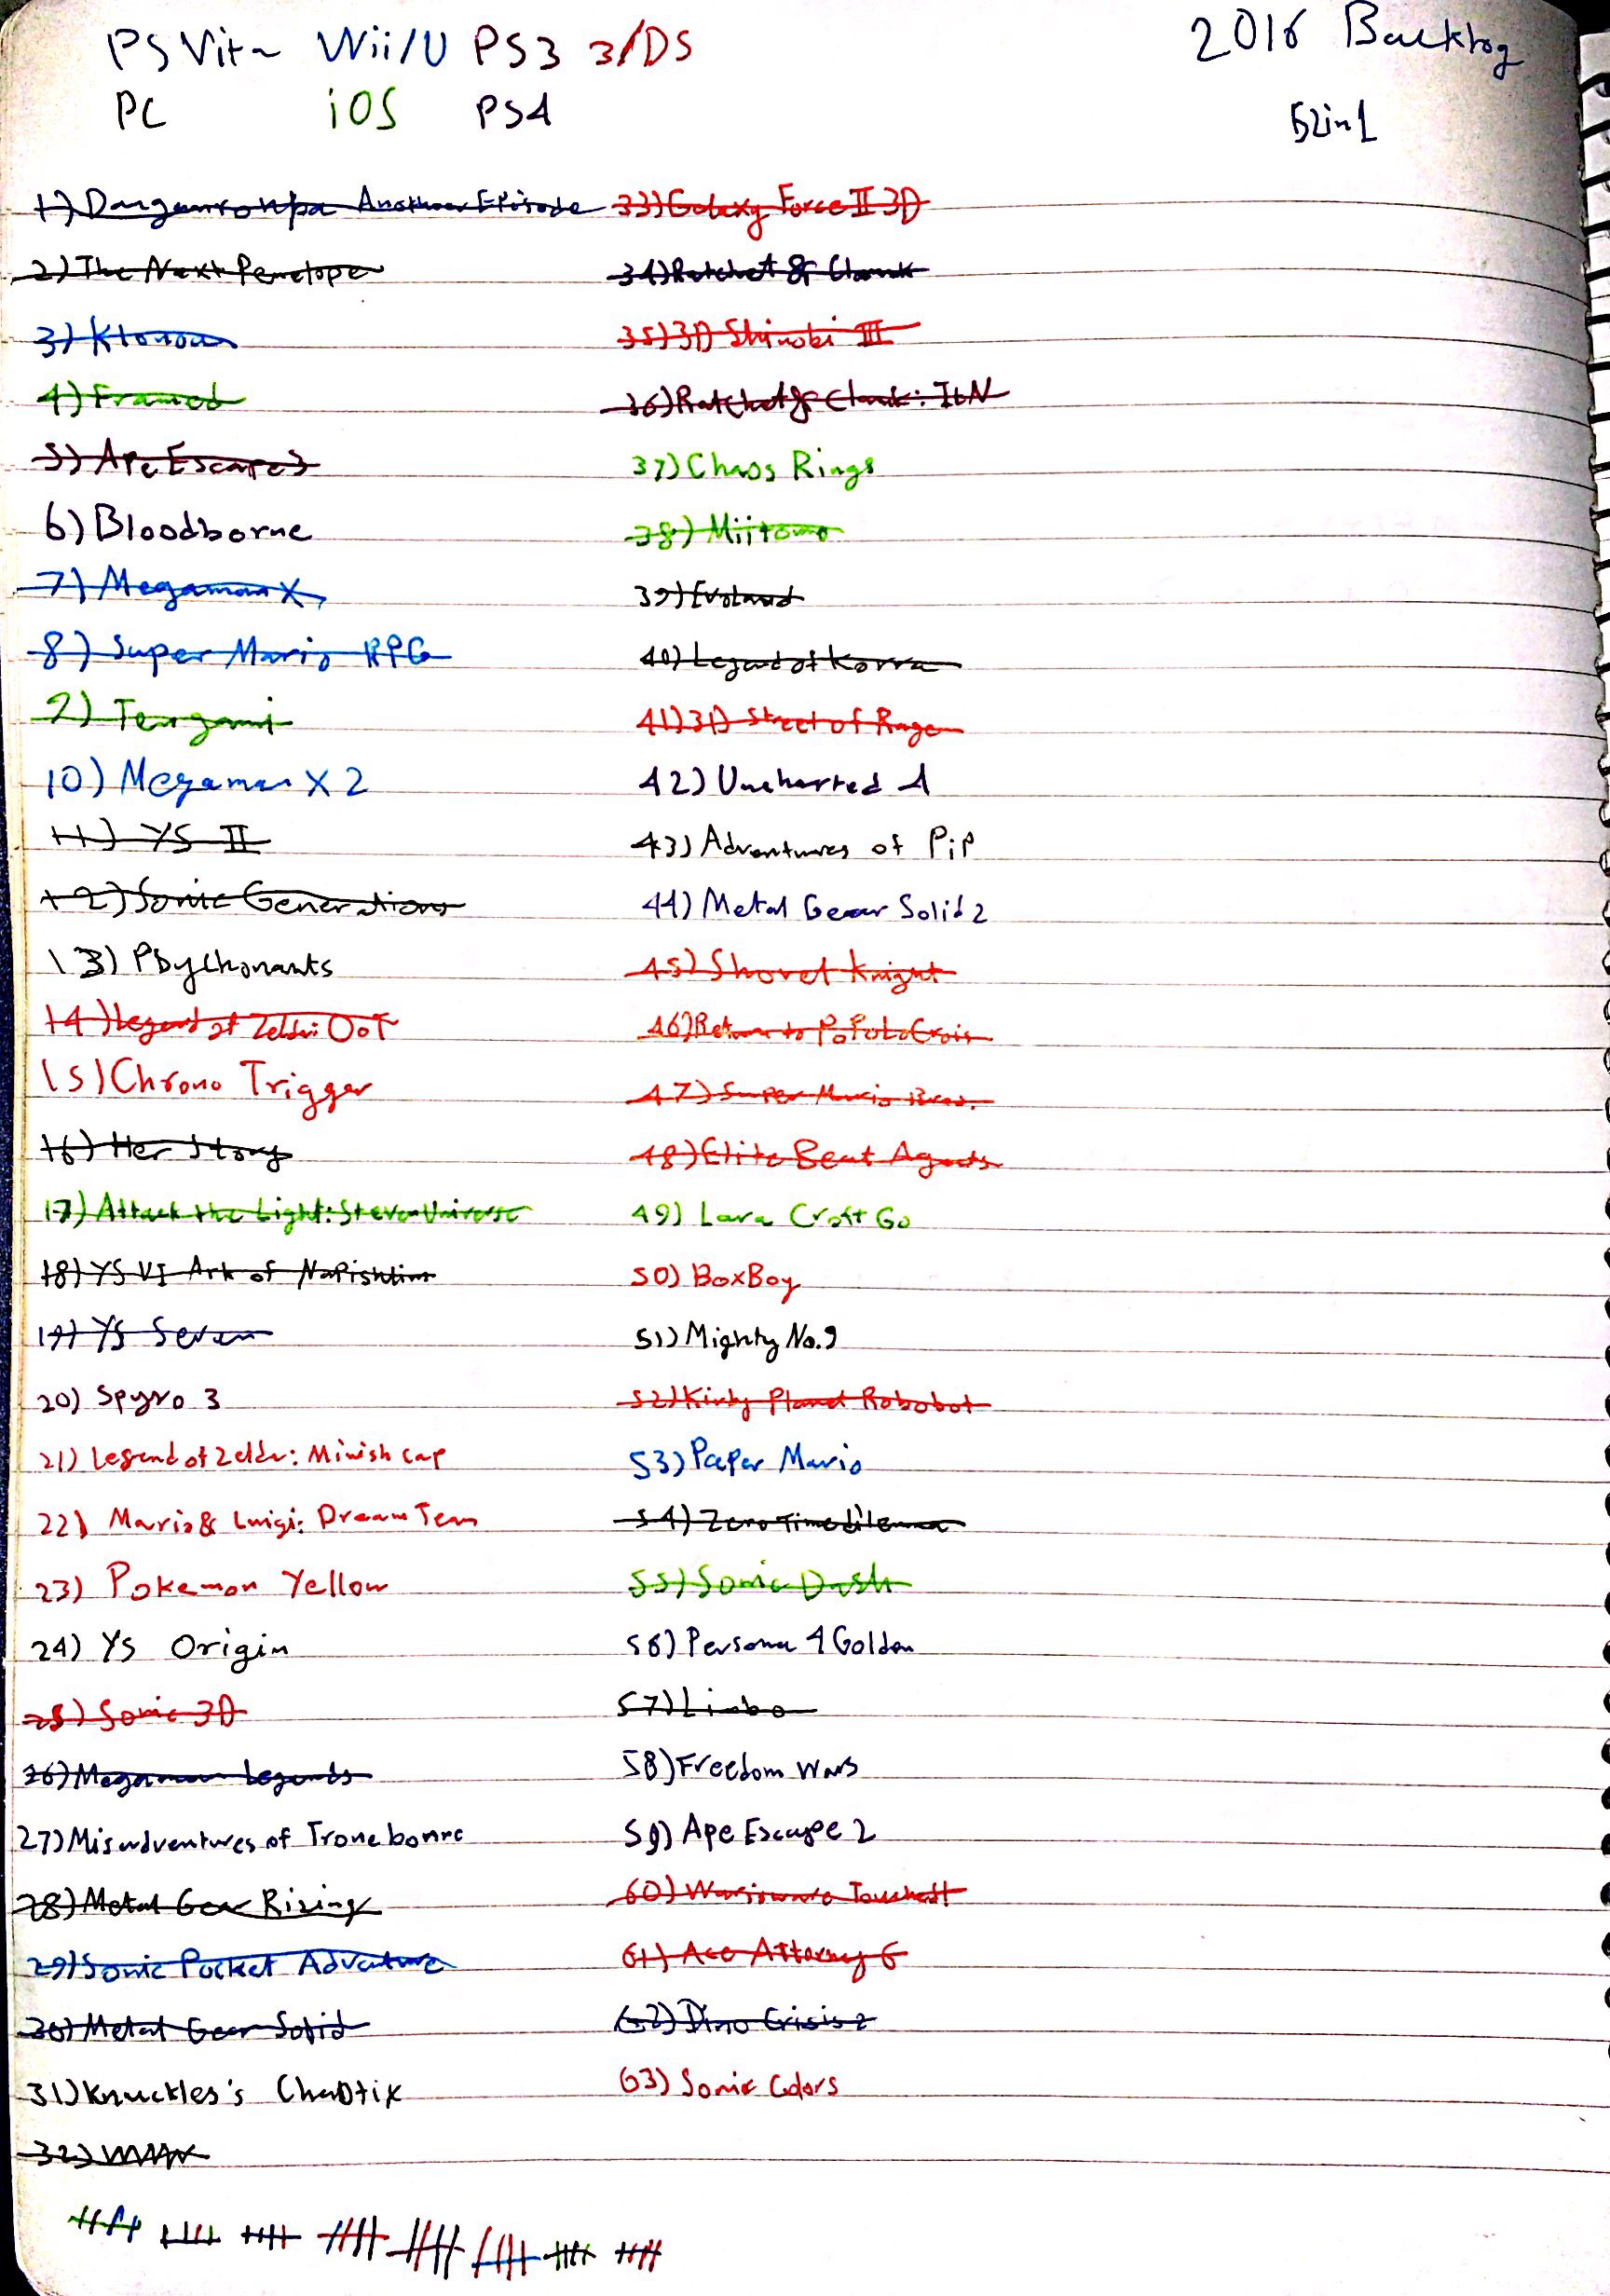 PS Vita Wii/U PS3 3/DS
PC iOS PS4
2016 Backlog
52in1
1) Danganronpa Another Episode
2) The Next Penelope
3) Klonoa
4) Framed
5) Ape Escape 3
6) Bloodborne
7) Megaman X
8) Super Mario RPG
9) Tengami
10) Megaman X 2
11) YS II
12) Sonic Generations
13) Psychonauts
14) Legend of Zelda: OoT
15) Chrono Trigger
16) Her Story
17) Attack the Light: Steven Universe
18) YS VI Ark of Napishtim
19) YS Seven
20) Spyro 3
21) Legend of Zelda: Minish cap
22) Mario & Luigi: Dream Team
23) Pokemon Yellow
24) YS Origin
25) Sonic 3D
26) Megaman Legends
27) Misadventures of Tronebonne
28) Metal Gear Rising
29) Sonic Pocket Adventure
30) Metal Gear Solid
31) Knuckles's Chaotix
32)
33) Galaxy Force II 3D
34) Ratchet & Clank
35) 3D Shinobi III
36) Ratchet & Clank: ItN
37) Chaos Rings
38) Miitomo
39) Evoland
40) Legend of Korra
41) 3D Street of Rage
42) Uncharted 4
43) Adventures of Pip
44) Metal Gear Solid 2
45) Shovel Knight
46) Return to PoPoLoCrois
47) Super Mario Bros.
48) Elite Beat Agents
49) Lara Croft Go
50) BoxBoy
51) Mighty No.9
52) Kirby Planet Robobot
53) Paper Mario
54) Zero Time Dilemma
55) Sonic Dash
56) Persona 4 Golden
57) Limbo
58) Freedom Wars
59) Ape Escape 2
60) Warioware Touched!
61) Ace Attorney 6
62) Dino Crisis 2
63) Sonic Colors